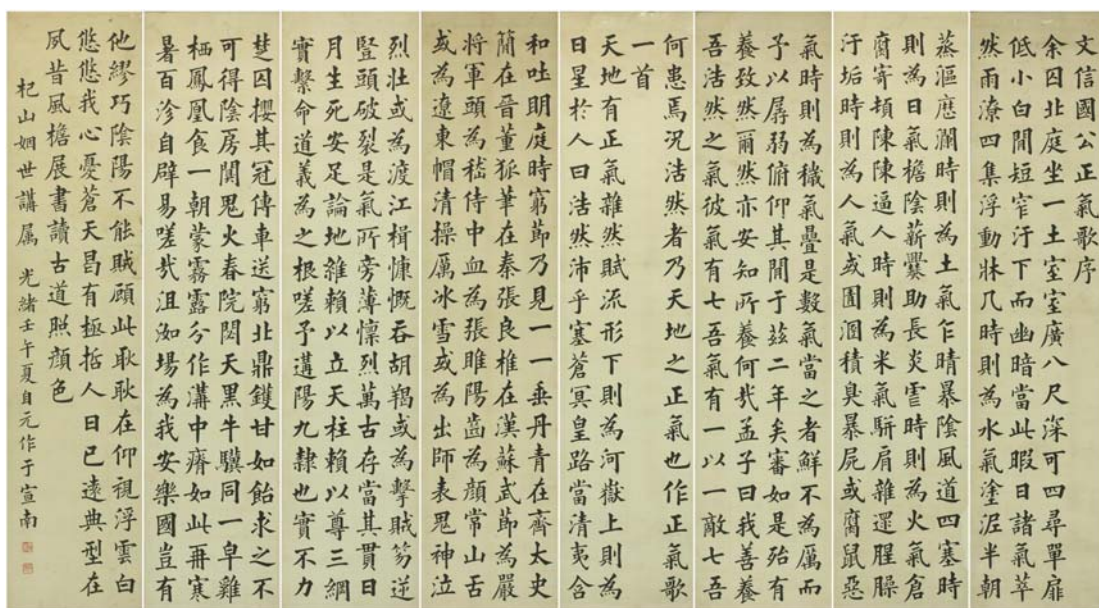 文信國公正氣歌序
余囚北庭坐一土室室廣八尺深可四尋單扉
低小白閒短窄汙下而幽暗當此暇日諸氣萃
然雨潦四集浮動牀几時則為水氣塗泥半朝
蒸漚歷瀾時則為土氣乍晴暴陰風道四塞時
則為日氣檐陰薪爨助長炎虐時則為火氣倉
腐寄頓陳陳逼人時則為米氣駢肩雜遝腥臊
汙垢時則為人氣或圊溷積臭暴屍或腐鼠惡
氣時則為穢氣疊是數氣當之者鮮不為厲而
予以孱弱俯仰其閒于茲二年矣審如是殆有
養致然爾然亦安知所養何哉孟子曰我善養
吾浩然之氣彼氣有七吾氣有一以一敵七吾
何患焉況浩然者乃天地之正氣也作正氣歌
一首
天地有正氣雜然賦流形下則為河嶽上則為
日星於人曰浩然沛乎塞蒼冥皇路當清夷含
和吐明庭時窮節乃見一一垂丹青在齊太史
簡在晉董狐筆在秦張良椎在漢蘇武節為嚴
將軍頭為嵇侍中血為張睢陽齒為顏常山舌
或為遼東帽清操厲冰雪或為出師表鬼神泣
烈壯或為渡江楫慷慨吞胡羯或為擊賊笏逆
豎頭破裂是氣所旁薄懍烈萬古存當其貫日
月生死安足論地維賴以立天柱賴以尊三綱
實繫命道義為之根嗟予遘陽九隸也實不力
楚囚纓其冠傳車送窮北鼎鑊甘如飴求之不
可得陰房闃鬼火春院閟天黑牛驥同一皁雞
栖鳳凰食一朝蒙霧露分作溝中瘠如此再寒
暑百沴自辟易嗟哉沮洳場為我安樂國豈有
他繆巧陰陽不能賊顧此耿耿在仰視浮雲白
悠悠我心憂蒼天曷有極哲人日已遠典型在
夙昔風檐展書讀古道照顏色
杞山姻世講属 光緒壬午夏自元作于宣南